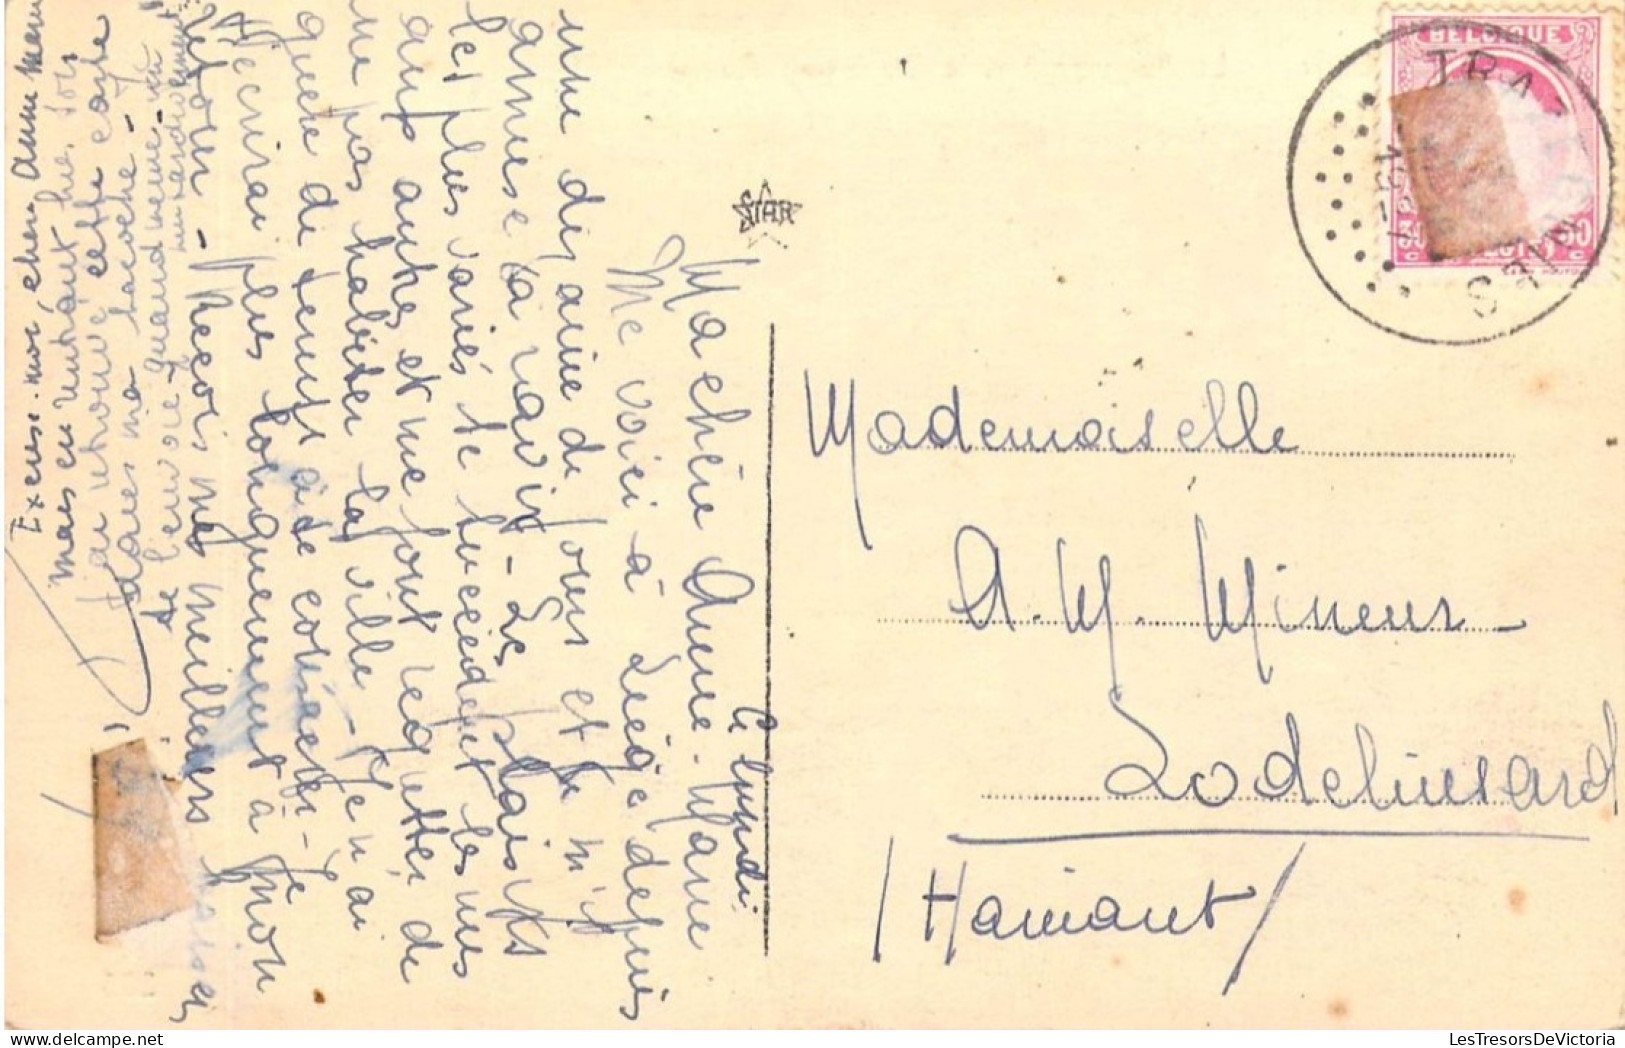 Ce lundi.
Ma chère Anne-Marie
Me voici à Liège depuis
une dizaine de jours et je m'y
amuse à ravir - Les plaisirs
les plus variés se succèdent les uns
aux autres et me font regretter de
ne pas habiter la ville - Je n'ai
guère de temps à te consacrer - Je
t'écrirai plus longuement à mon
retour - Reçois mes meilleurs baisers
Excuse-moi, chère Anne Marie
mais en rentrant hier soir
j'ai retrouvé cette carte
dans ma sacoche - Je
te l'envoie quand même
STAR
BELGIQUE
Mademoiselle
A. M. Mineur
Lodelinsart
(Hainaut)
LesTresorsDeVictoria.com